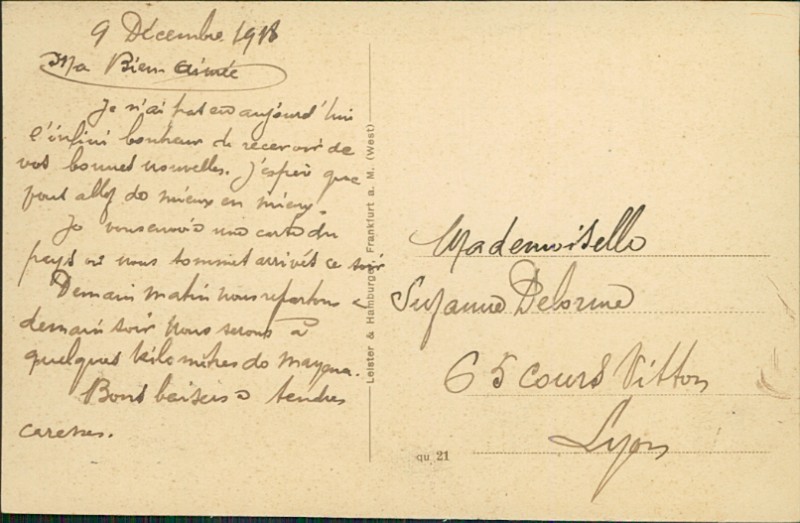 9 Décembre 1918
Ma Bien aimée
Je n'ai pas eu aujourd'hui
l'infini bonheur de recevoir de
vos bonnes nouvelles. J'espère que
vous allez de mieux en mieux.
Je vous envoie une carte du
pays où nous sommes arrivés ce soir
Demain matin nous repartons &
demain soir nous serons à
quelques kilomètres de Mayence.
Bons baisers & tendres
caresses.
Leister & Hamburger, Frankfurt a. M. (West)
qu 21
Mademoiselle
Suzanne Delorme
65 cours Vitton
Lyon